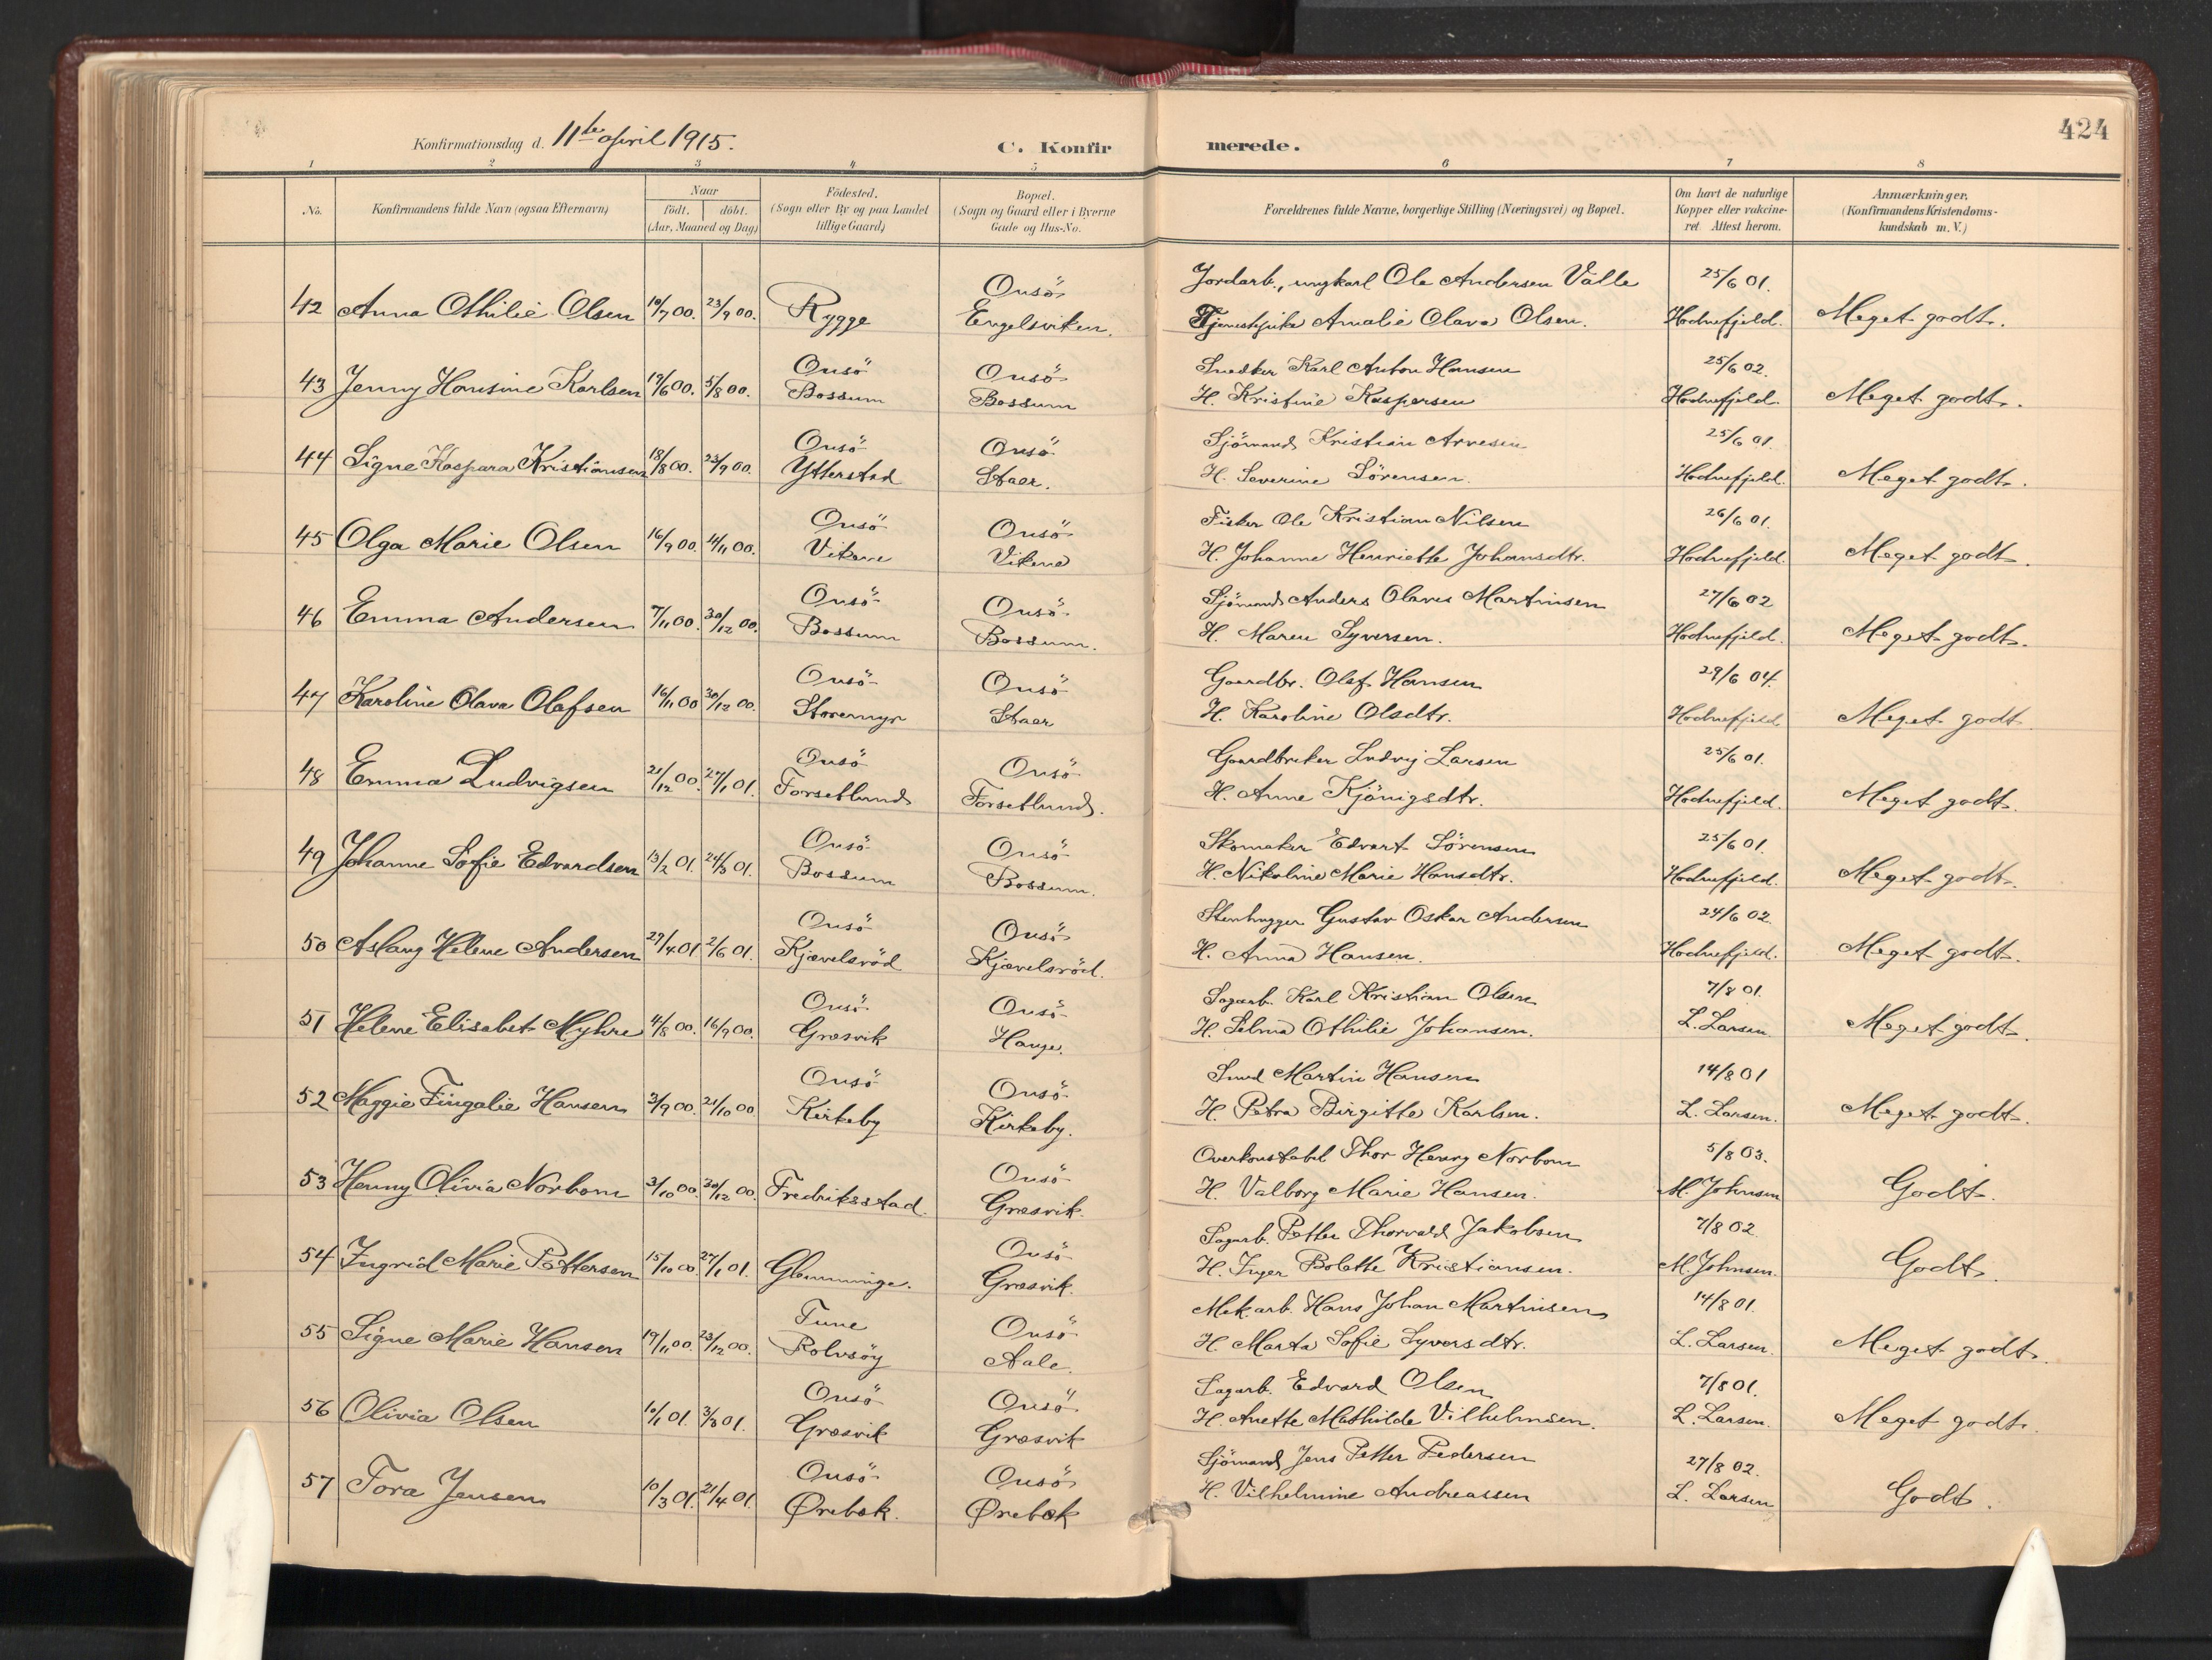 424
Konfirmationsdag d. 11te april 1915.
C. Konfirmerede.
1 2 3 4 5 6 7 8
No.
Konfirmandens fulde Navn (ogsaa Efternavn)
Naar
födt. döbt.
(Aar, Maaned og Dag)
Födested.
(Sogn eller By og paa Landet
tillige Gaard)
Bopæl.
(Sogn og Gaard eller i Byerne
Gade og Hus-No.
Forældrenes fulde Navne, borgerlige Stilling (Næringsvei) og Bopæl.
Om havt de naturlige
Kopper eller vakcine-
ret. Attest herom.
Anmærkninger,
(Konfirmandens Kristendoms-
kundskab m. V.)
Onsö Jordarb., ungkarl Ole Andersen Välle 25/6 01.
42 Anna Othilie Olsen 10/7 00. 23/9 00. Rygge Engelsviken. Tjenestepike Amalie Olava Olsen. Hodnefjeld. Meget godt.
Onsö Onsö Snedker Karl Anton Hansen 25/6 02.
43 Jenny Hansine Karlsen 19/6 00. 5/8 00. Bossum Bossum H. Kristine Kaspersen Hodnefjeld. Meget godt.
Onsö Onsö Sjömand Kristian Arvesen 25/6 01.
44 Signe Kaspara Kristiansen 18/8 00. 23/9 00. Ytterstad Staer. H. Severine Sörensen. Hodnefjeld. Meget godt.
Onsö Onsö Fisker Ole Kristian Nilsen 26/6 01.
45 Olga Marie Olsen 16/9 00. 14/11 00. Vikene Vikene H. Johanne Henriette Johansdtr. Hodnefjeld. Meget godt.
Onsö Onsö Sjömand Anders Olaves Martinsen 27/6 02
46 Emma Andersen 7/11 00. 30/12 00. Bossum Bossum. H. Maren Syversen. Hodnefjeld. Meget godt.
Onsö Onsö Gaardbr. Olaf Hansen 29/6 04.
47 Karoline Olava Olafsen 16/11 00 30/12 00. Storemyr Staer H. Karoline Olsdtr. Hodnefjeld Meget godt
Onsö Onsö Gaardbruker Ludvig Larsen 25/6 01.
48 Emma Ludvigsen 21/12 00. 27/1 01. Forsetlund Forsetlund. H. Anne Kjönigsdtr. Hodnefjeld. Meget godt.
Onsö Onsö Skomaker Edvart Sörensen 25/6 01.
49 Johanne Sofie Edvardsen 13/2 01. 24/3 01. Bossum Bossum. H. Nikoline Marie Hansdtr. Hodnefjeld. Meget godt.
Onsö Onsö Stenhugger Gustav Oskar Andersen 24/6 02.
50 Aslaug Helene Andersen 29/4 01 2/6 01. Kjævelsröd Kjævelsröd. H. Anna Hansen. Hodnefjeld. Meget godt.
Onsö Onsö Sagarb. Karl Kristian Olsen 7/8 01.
51 Helene Elisabet Myhre 4/8 00. 16/9 00. Græsvik Hauge. H. Selma Othilie Johansen. L. Larsen. Meget godt.
Onsö Onsö Smed Martin Hansen 14/8 01
52 Maggie Fingalie Hansen 3/9 00. 21/10 00. Kirkeby Kirkeby. H. Petra Birgitte Karlsen. L. Larsen. Meget godt.
Onsö Overkonstabel Thor Henry Norbom 5/8 03.
53 Henny Olivia Norbom 3/10 00. 30/12 00. Fredriksstad. Græsvik. H. Valborg Marie Hansen. M. Johnsen Godt.
Onsö Sagarb. Petter Thorvald Jakobsen 7/8 02.
54 Ingrid Marie Pettersen 15/10 00 27/1 01. Glemminge. Græsvik. H. Inger Bolette Kristiansen. M. Johnsen. Godt.
Tune Onsö Mek. arb. Hans Johan Martinsen 14/8 01.
55 Signe Marie Hansen 19/11 00. 23/12 00. Rolvsöy Aale. H. Marta Sofie Syversdtr. L. Larsen. Meget godt.
Onsö Onsö Sagarb. Edvard Olsen 7/8 01.
56 Olivia Olsen 10/1 01. 3/3 01. Græsvik Græsvik H. Anette Mathilde Vilhelmsen. L. Larsen. Meget godt.
Onsö Onsö Sjömand Jens Petter Pedersen 27/8 02.
57 Tora Jensen 10/3 01. 21/4 01. Ørebæk. Ørebæk H. Vilhelmine Andreassen L. Larsen Godt.